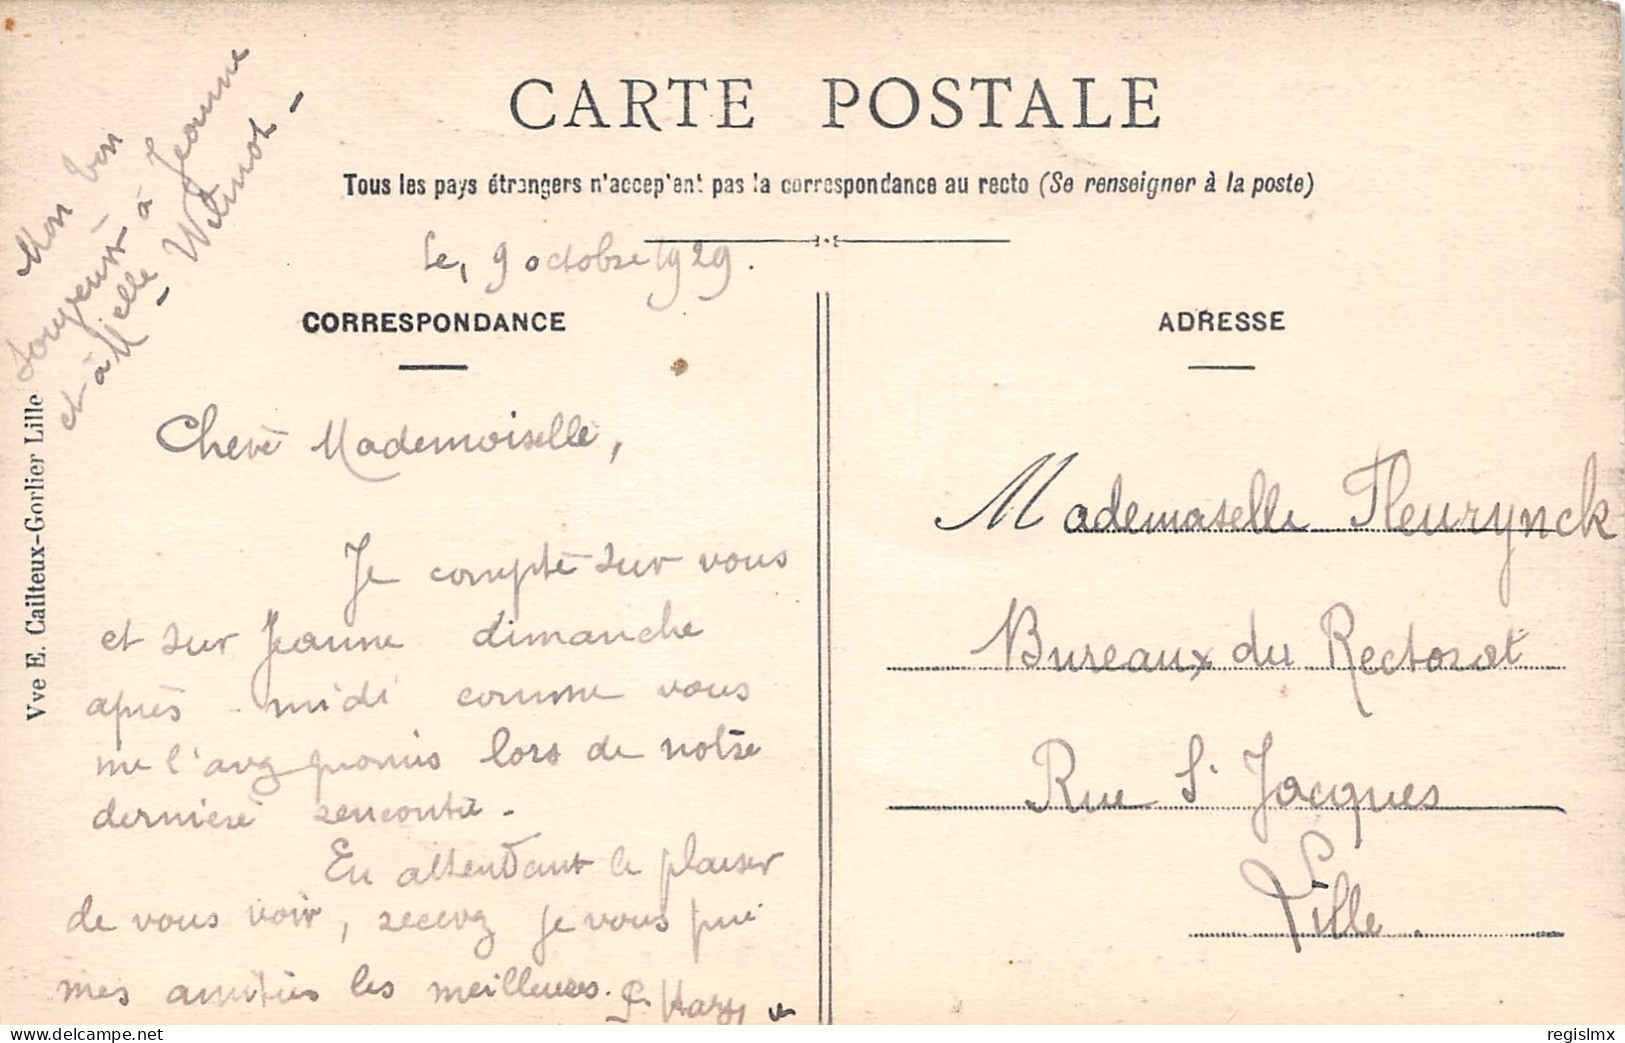 CARTE POSTALE
Tous les pays étrangers n'acceptent pas la correspondance au recto (Se renseigner à la poste)
Mon bon
souvenir à Jeanne
et à Melle Wilmot -
Le, 9 octobre 1929.
CORRESPONDANCE
Chère Mademoiselle,
Je compte sur vous
et sur Jeanne dimanche
après-midi comme vous
me l'avez promis lors de notre
dernière rencontre.
En attendant le plaisir
de vous voir, recevez je vous prie
mes amitiés les meilleures.
ADRESSE
Mademoiselle Fleurynck
Bureaux du Rectorat
Rue St Jacques
Lille.
Vve E. Cailteux-Gorlier Lille
www.delcampe.net
regislmx